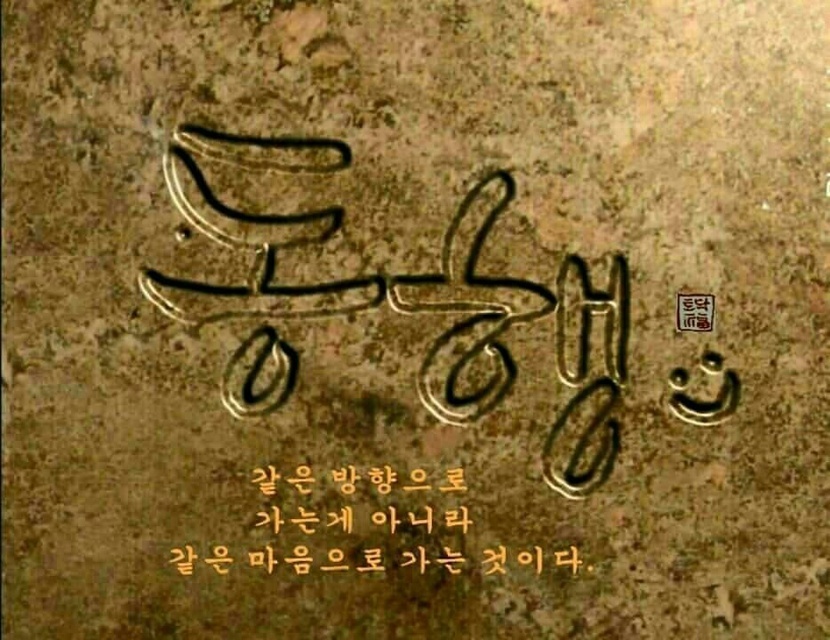 동행
토닥
福
같은 방향으로
가는게 아니라
같은 마음으로 가는 것이다.